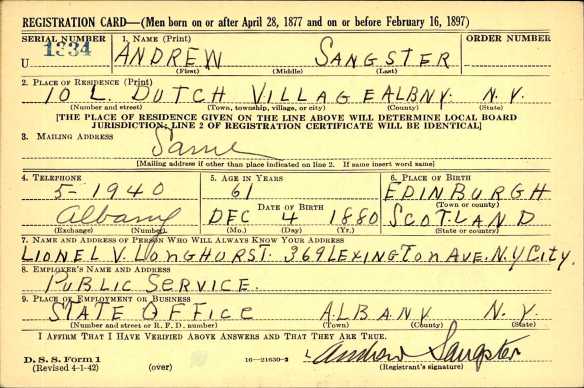 REGISTRATION CARD—(Men born on or after April 28, 1877 and on or before February 16, 1897)
SERIAL NUMBER 1. NAME (Print) ORDER NUMBER
U 1334 ANDREW SANGSTER
(First) (Middle) (Last)
2. PLACE OF RESIDENCE (Print)
10 L. DUTCH VILLAGE ALBNY. N.Y.
(Number and street) (Town, township, village, or city) (County) (State)
[THE PLACE OF RESIDENCE GIVEN ON THE LINE ABOVE WILL DETERMINE LOCAL BOARD
JURISDICTION; LINE 2 OF REGISTRATION CERTIFICATE WILL BE IDENTICAL]
3. MAILING ADDRESS
Same
[Mailing address if other than place indicated on line 2. If same insert word same]
4. TELEPHONE 5. AGE IN YEARS 6. PLACE OF BIRTH
5-1940 61 EDINBURGH
DATE OF BIRTH (Town or county)
Albany DEC 4 1880 SCOTLAND
(Exchange) (Number) (Mo.) (Day) (Yr.) (State or country)
7. NAME AND ADDRESS OF PERSON WHO WILL ALWAYS KNOW YOUR ADDRESS
LIONEL V. LONGHURST. 369 LEXINGTON AVE. N.Y CITY.
8. EMPLOYER'S NAME AND ADDRESS
PUBLIC SERVICE.
9. PLACE OF EMPLOYMENT OR BUSINESS
STATE OFFICE ALBANY N.Y.
(Number and street or R. F. D. number) (Town) (County) (State)
I AFFIRM THAT I HAVE VERIFIED ABOVE ANSWERS AND THAT THEY ARE TRUE.
D. S. S. Form 1
(Revised 4-1-42) (over) 16—21630-2 Andrew Sangster
(Registrant's signature)